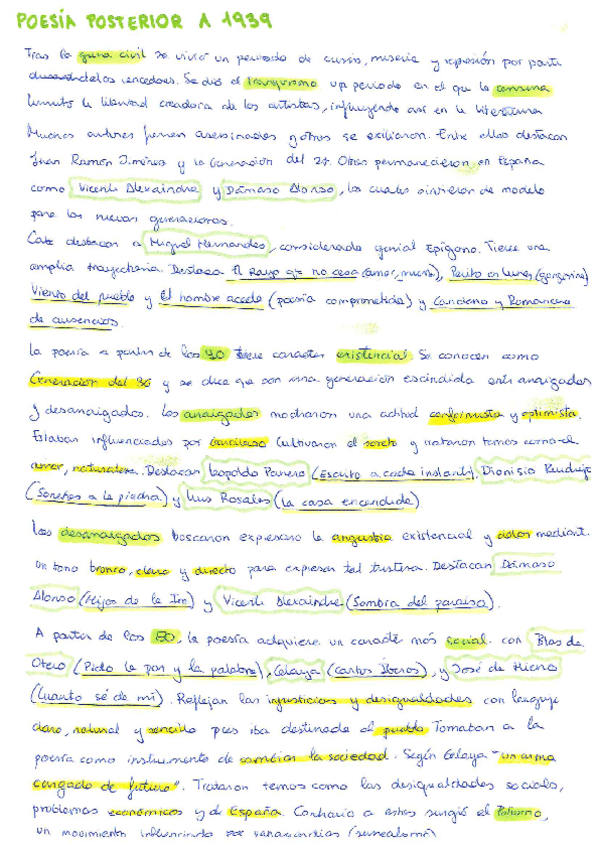 POESÍA POSTERIOR A 1939
Tras la guerra civil se vivió un periodo de crisis, miseria y represión por parte
de los vencedores. Se dio el franquismo un periodo en el que la censura
limitó la libertad creadora de los artistas, influyendo así en la literatura
Muchos autores fueron asesinados y otros se exiliaron. Entre ellos destacan
Juan Ramón Jiménez y la Generación del 27. Otros permanecieron en España
como Vicente Aleixandre y Dámaso Alonso, los cuales sirvieron de modelo
para las nuevas generaciones.
Cabe destacar a Miguel Hernandes, considerado genial Epígono. Tiene una
amplia trayectoria. Destaca El Rayo que no cesa (amor, muerte), Perito en lunes (gongorina)
Viento del pueblo y El hombre acecha (poesía comprometida) y Cancionero y Romancero
de ausencias.
La poesía a partir de los 40 tiene caracter existencial. Se conocen como
Generación del 36 y se dice que son una generación escindida entre arraigados
y desarraigados. Los arraigados mostraron una actitud conformista y optimista.
Estaban influenciados por Garcilaso Cultivaron el soneto y trataron temas como el
amor, naturaleza. Destacan Leopoldo Panero (Escrito a cada instante), Dionisio Ridruejo
(Sonetos a la piedra) y Luis Rosales (la casa encendida)
Los desarraigados buscaron expresar la angustia existencial y dolor mediante
un tono bronco, claro y directo para expresar tal tristeza. Destacan Dámaso
Alonso (Hijos de la Ira) y Vicente Aleixandre (Sombra del paraíso).
A partir de los 50, la poesía adquiere un caracter más social. con Blas de
Otero (Pido la paz y la palabra), Celaya (cantos Iberos), y José de Hierro
(Cuanto sé de mí). Reflejan las injusticias y desigualdades con lenguaje
claro, natural y sencillo pues iba destinada al pueblo Tomaban a la
poesía como instrumento de cambiar la sociedad. Según Celaya "un arma
cargado de futuro". Trataron temas como las desigualdades sociales,
problemas económicos y de España. Contrario a estos surgió el Postismo,
un movimiento influenciado por vanguardias (surrealismo)